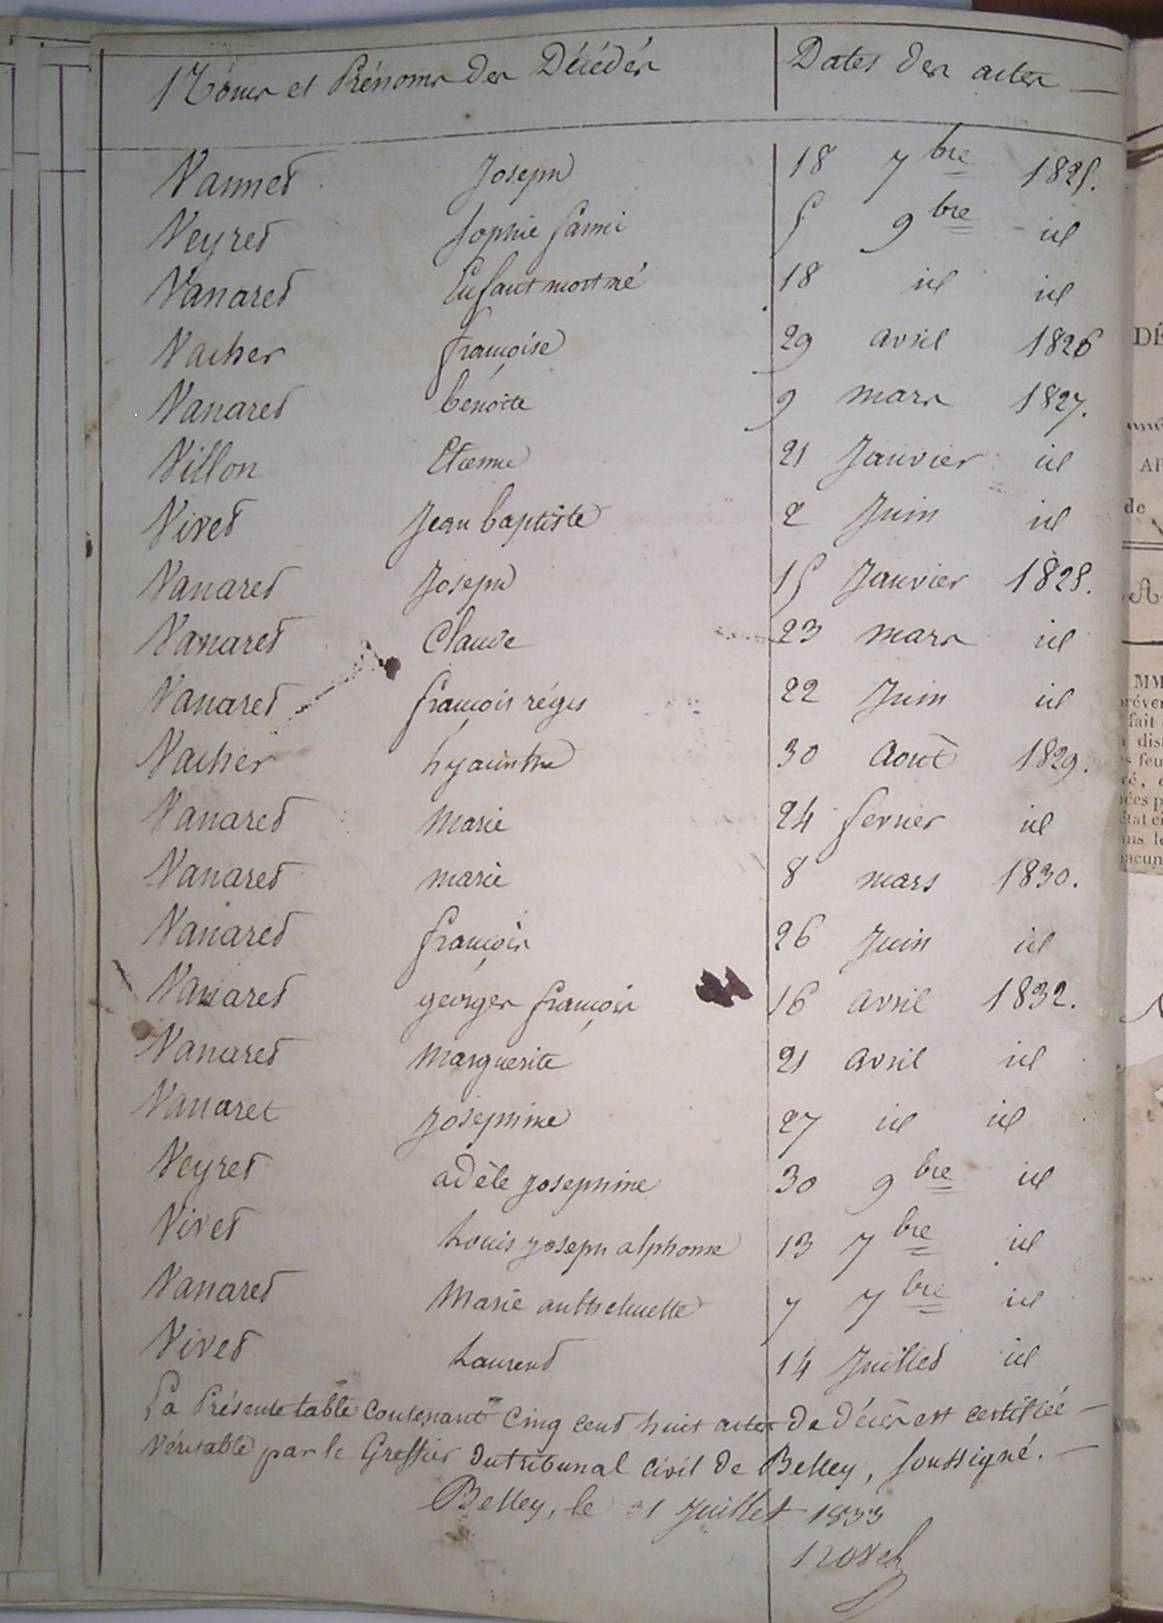 Noms et Prénoms des Décédés Dates des actes
Vannet Joseph 18 7bre 1825.
Veyret Sophie fanni 5 9bre id
Vanaret Enfant mort né 18 id id
Vacher françoise 29 avril 1826
Vanaret benoite 9 mars 1827.
Villon Etienne 21 Janvier id
Vivet Jean baptiste 2 Juin id
Vanaret Joseph 15 Janvier 1828.
Vanaret Claude 23 mars id
Vanaret françois régis 22 Juin id
Vacher hyacinthe 30 Août 1829.
Vanaret Marie 24 fevrier id
Vanaret marie 8 mars 1830.
Vanaret françois 26 Juin id
Vanaret georges françois 16 avril 1832.
Vanaret Marguerite 21 avril id
Vanaret Josephine 27 id id
Veyret adèle Josephine 30 9bre id
Vivet Louis Joseph alphonse 13 7bre id
Vanaret Marie 7 7bre id
Vivet Laurent 14 Juillet id
La Présente table Contenant Cinq cent huit actes de décès est certifiée
Véritable par le Greffier du tribunal civil de Belley, soussigné.
Belley, le 31 Juillet 1833